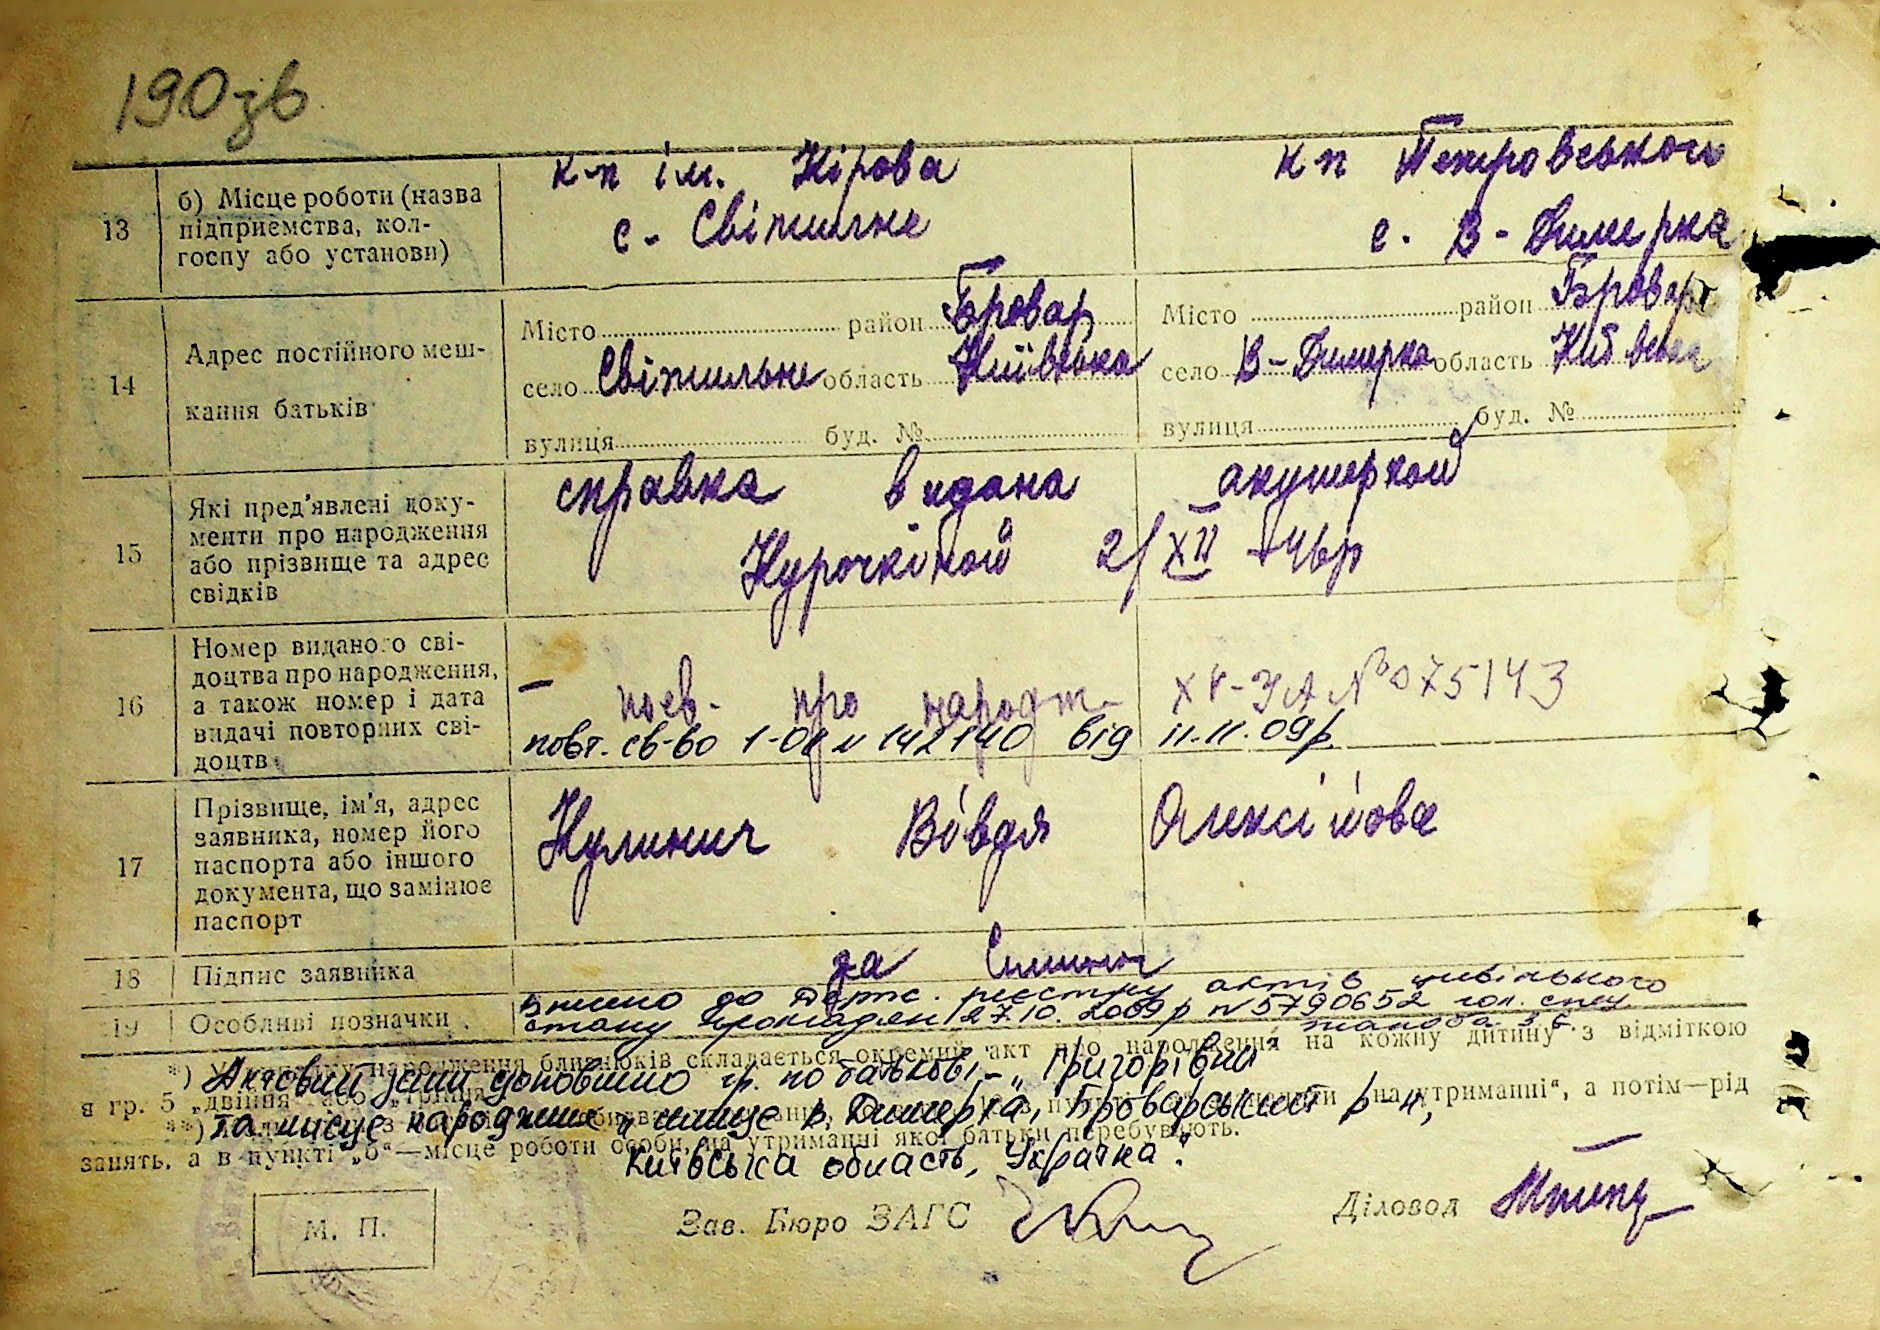 190зв
13
б) Місце роботи (назва
підприємства, кол-
госпу або установи)
к-п ім. Кірова
с - Світильне
к п Петровського
с. В-Димерка
14
Адрес постійного меш-
кання батьків
Місто район Бровар
село Світильне область Київська
вулиця буд. №
Місто район Бровар
село В-Димерка область Київська
вулиця буд. №
15
Які пред'явлені доку-
менти про народження
або прізвище та адрес
свідків
справка видана акушеркой
Курочкіной 2/XII 46р
16
Номер виданого сві-
доцтва про народження,
а також номер і дата
видачі повторних сві-
доцтв
про народж- XV-УА № 075143
повт. св-во 1- № 142140 від 11.11.09р.
17
Прізвище, ім'я, адрес
заявника, номер його
паспорта або іншого
документа, що замінює
паспорт
Кулинич Вівдя Олексіївова
18
Підпис заявника
за
19
Особливі позначки
Внесено до Держ. реєстру актів цивільного
стану громадян 27.10.2009р №5790652 гол. спец
*) народження близнюків складається окремий акт про народження на кожну дитину з відміткою
Актовий запис доповнено гр. по батькові - „Григорівна"
в гр. 5 „двійня" або на утриманні", а потім—рід
та місце народження „ селище В. Димерка, Броварський р-н,
занять, а в пункті „б"—місце роботи особи, на утриманні якої батьки перебувають.
Київська область, Україна".
М. П.
Зав. Бюро ЗАГС
Діловод